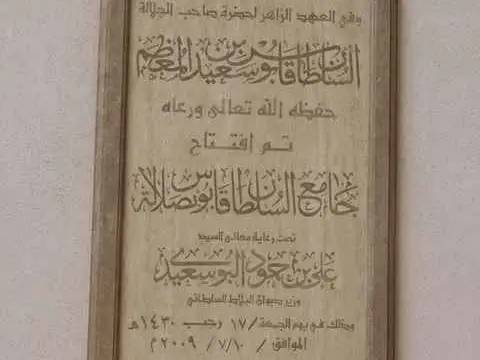 وفي العهد الزاهر لحضرة صاحب الجلالة
السلطان قابوس بن سعيد المعظم
حفظه الله تعالى ورعاه
تم افتتاح
جامع السلطان قابوس بصلالة
تحت رعاية معالي السيد
علي بن حمود البوسعيدي
وزير ديوان البلاط السلطاني
وذلك في يوم الجمعة / ١٧ رجب ١٤٣٠هـ
الموافق / ٧/١٠ / ٢٠٠٩م